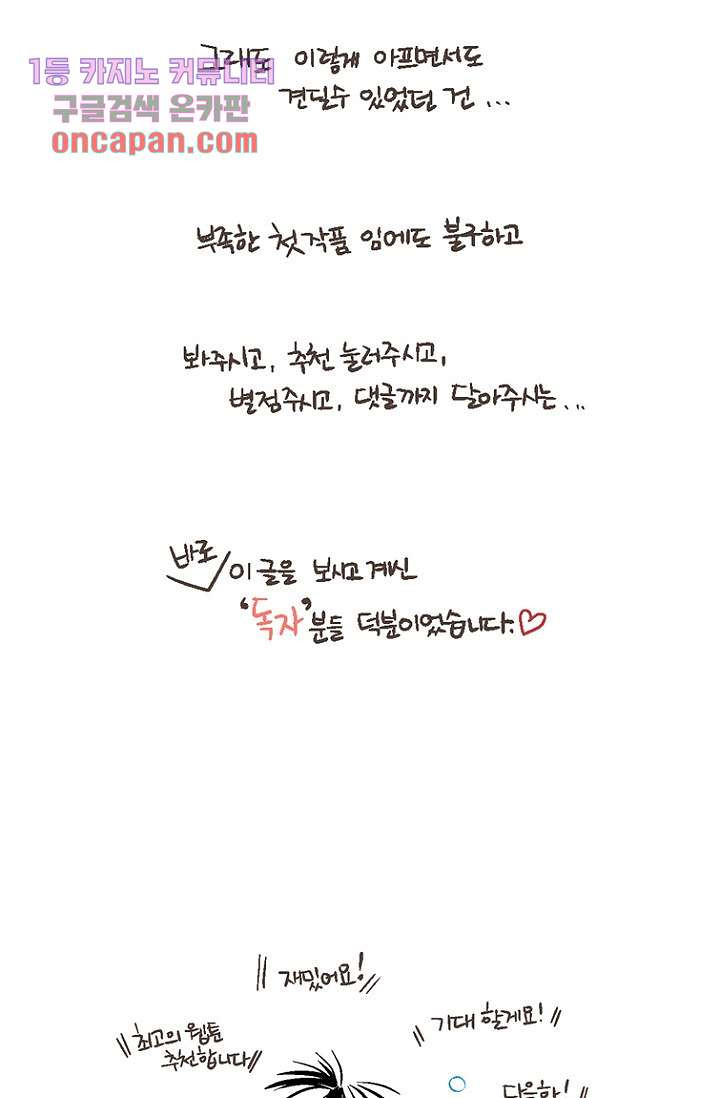 그래도 이렇게 아프면서도
1등 카지노 커뮤니티
견딜수 있었던 건...
구글검색 온카판
oncapan.com
부족한 첫작품 임에도 불구하고
봐주시고, 추천 눌러주시고,
별점주시고, 댓글까지 달아주시는...
바로
이 글을 보시고 계신
'독자'분들 덕분이었습니다.♡
재밌어요!
기대 할게요!
최고의 웹툰
추천합니다
다음화!